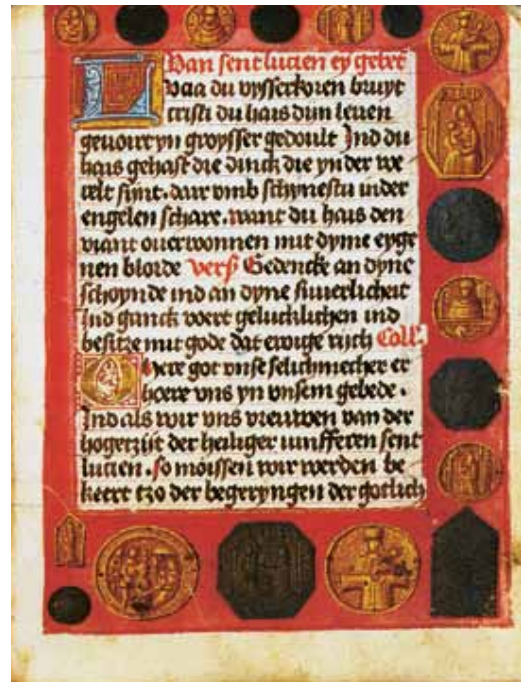 Van sent lucien ey gebet
Eyaa du vysserkoren bruyt
cristi du hais dijn leuen
geuoirt yn groysser gedoult Ind du
hais gehast die dinck die yn der we
relt synt. dair vmb schynestu vnder
engelen schare. want du hais den
viant ouerwonnen mit dyme eyge
nen bloide vers Gedencke an dyne
schoynde ind an dyne suuerlicheit
Ind ganck voert geluchlichen ind
besitze mit gode dat ewige rijch Coll.
O here got vnse selichmecher er
hoere vns yn vnsem gebede.
Ind als wir vns vreuwen van der
hogetzijt der heiliger iunfferen sent
lucien. so moissen wir werden be
keert tzo der begeryngen der gotlich